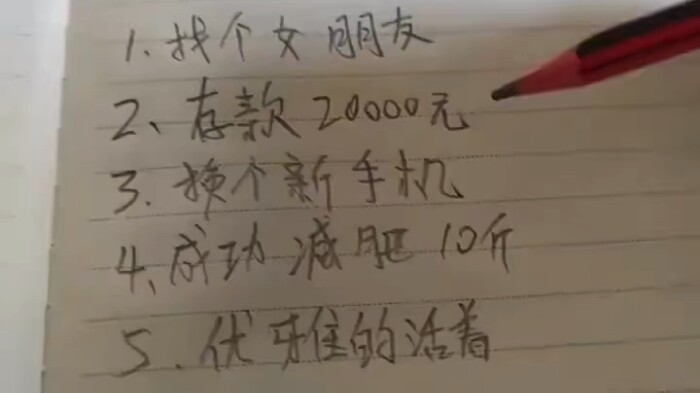 1. 找个女朋友
2、存款20000元
3. 换个新手机
4、成功减肥10斤
5. 优雅的活着